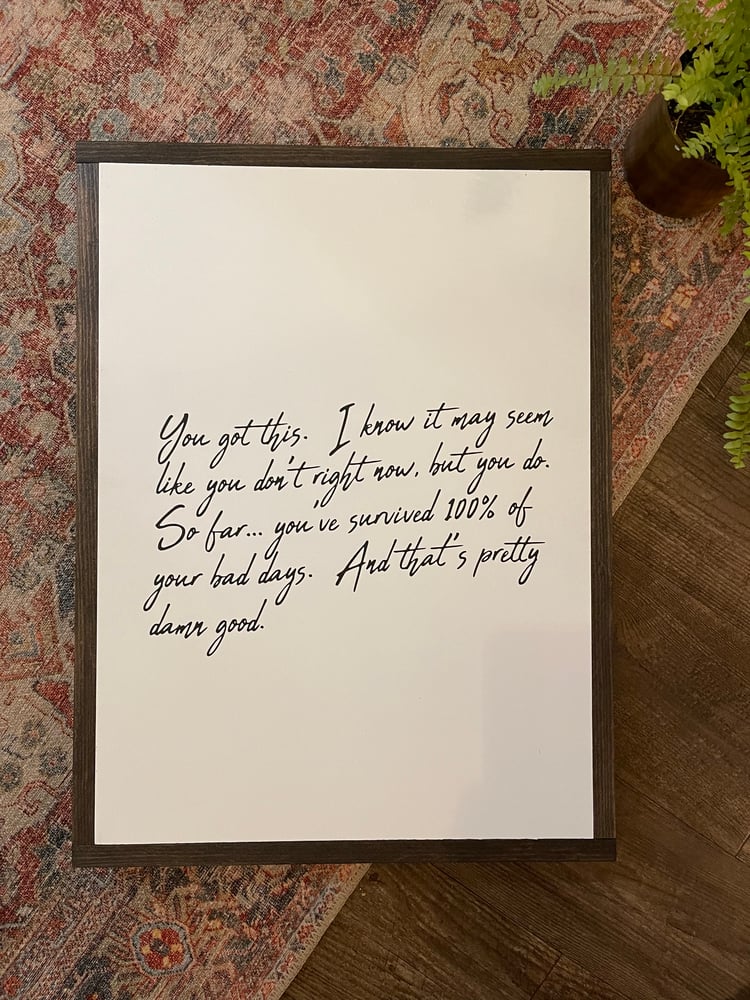 You got this. I know it may seem
like you don't right now, but you do.
So far... you've survived 100% of
your bad days. And that's pretty
damn good.